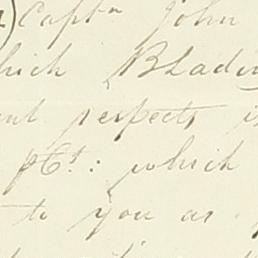 Captn John
which Blad
respects
pCt.: which
to you as